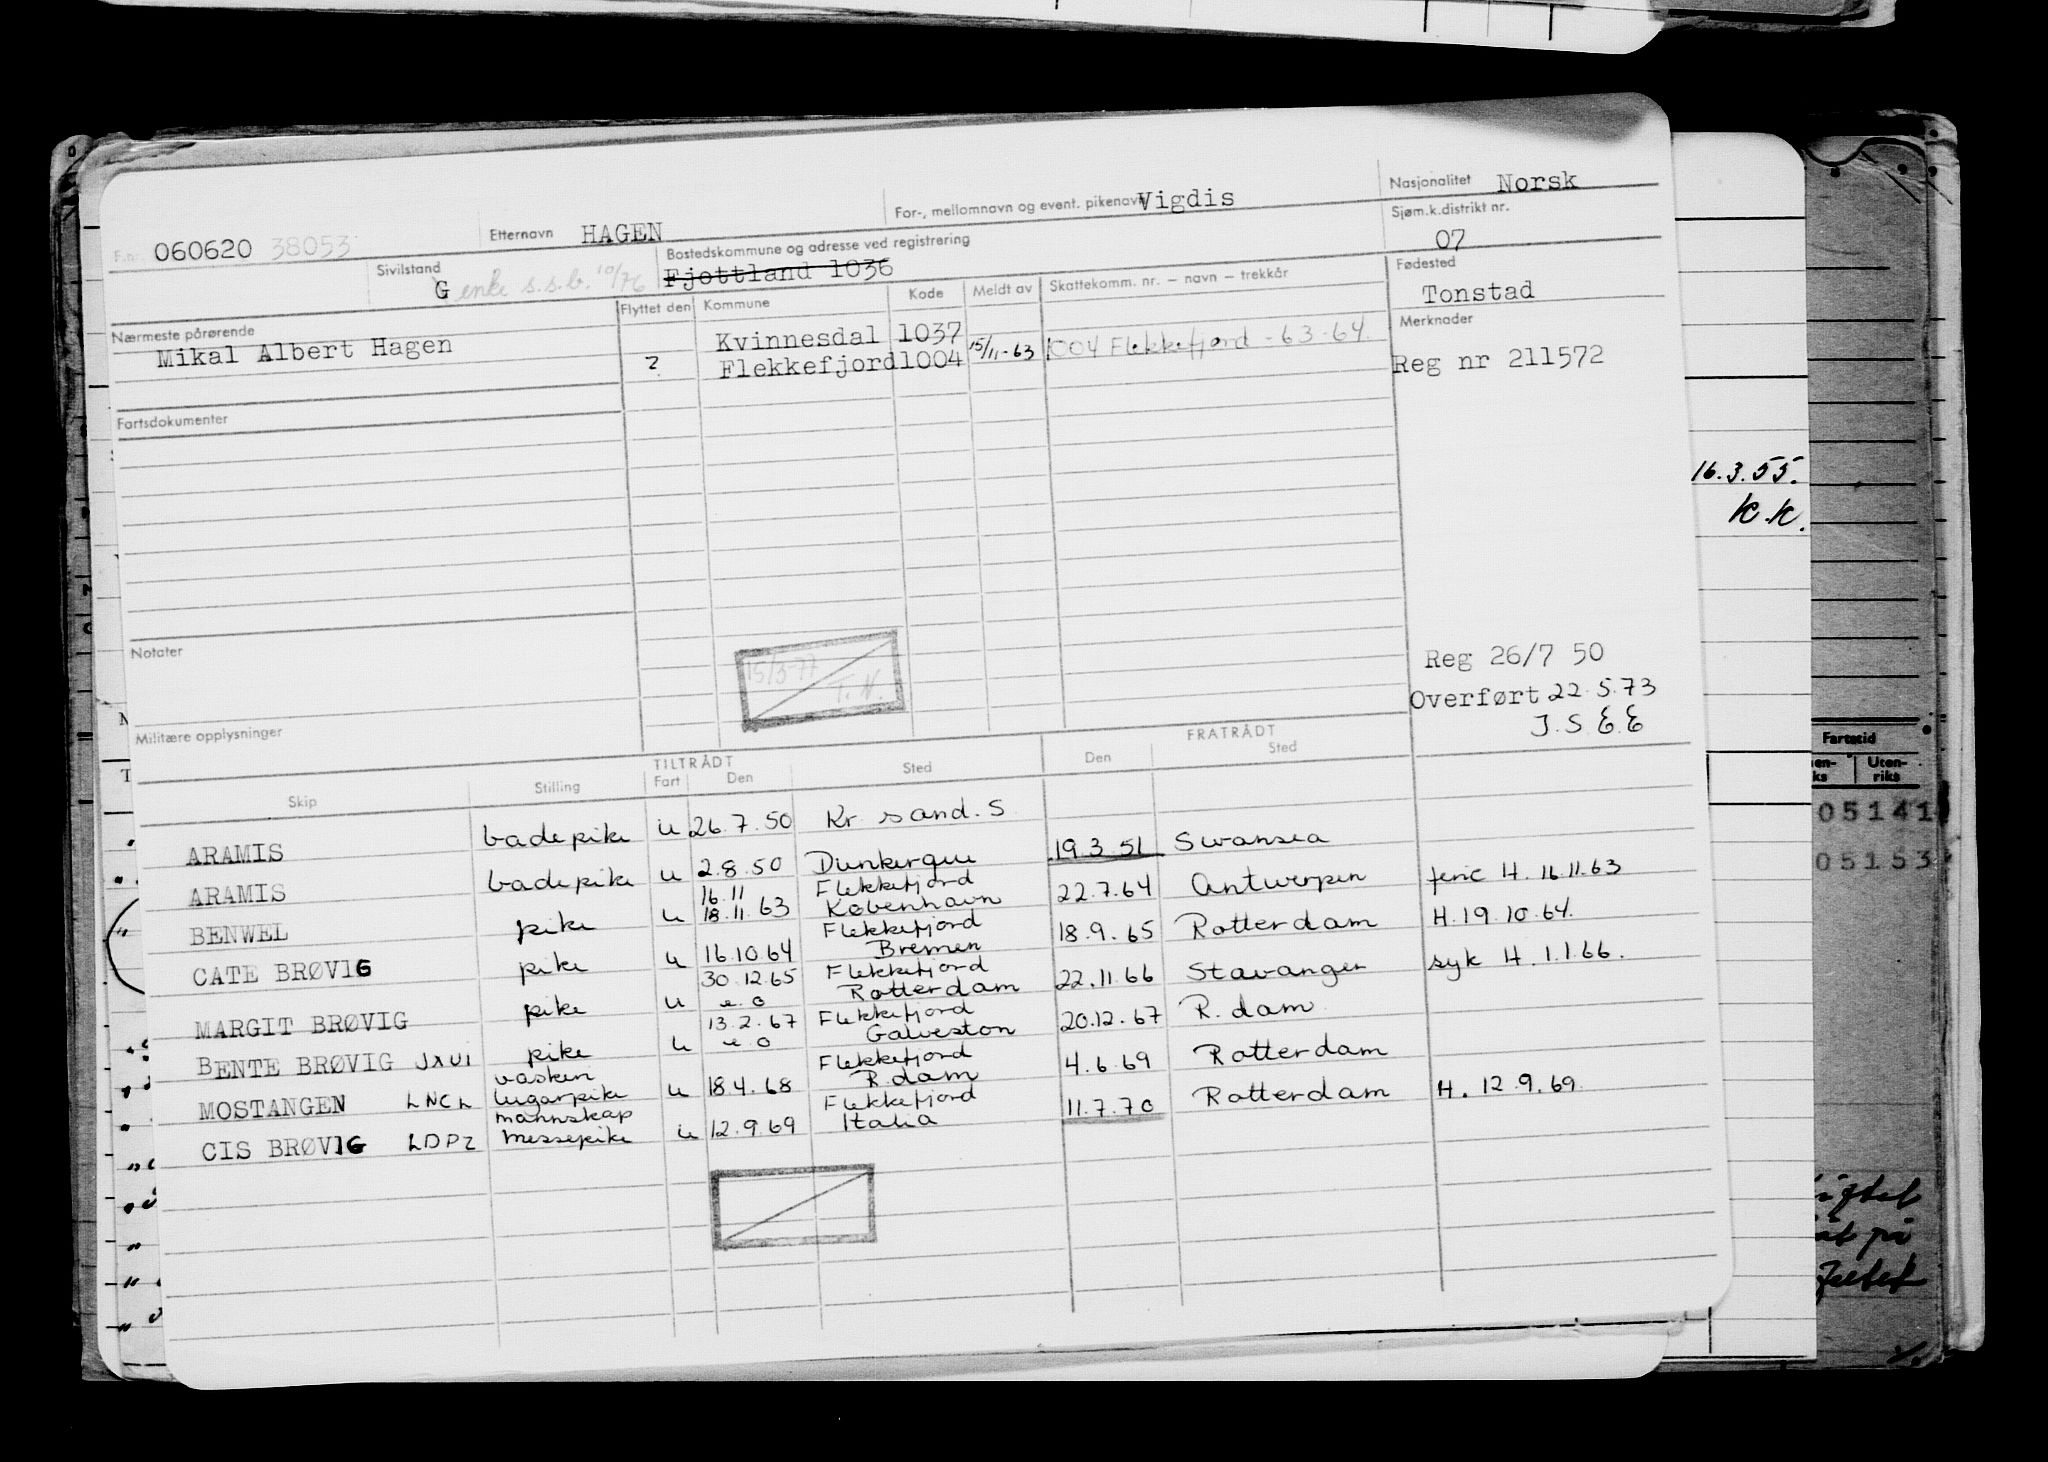 F.nr. 060620 38053
Etternavn HAGEN
For-, mellomnavn og event. pikenavn Vigdis
Nasjonalitet Norsk
Sivilstand G enke s.s.b. 10/76
Bostedskommune og adresse ved registrering
Fjottland 1036
Sjøm.k.distrikt nr.
07
Nærmeste pårørende
Mikal Albert Hagen
Flyttet den Kommune Kode Meldt av Skattekomm. nr. – navn – trekkår
Kvinnesdal 1037
? Flekkefjord 1004 15/11-63 1004 Flekkefjord - 63-64.
Fødested
Tonstad
Merknader
Reg nr 211572
Fartsdokumenter
Notater
15/3-77
T.N.
Reg 26/7 50
Overført 22.5.73
J.S EE
Militære opplysninger
TILTRÅDT FRATRÅDT
Skip Stilling Fart Den Sted Den Sted
ARAMIS badepike u 26.7.50 Kr sand. S
ARAMIS badepike u 2.8.50 Dunkerque 19.3.51 Swansea
BENWEL pike u 16.11 Flekkefjord
18.11.63 København 22.7.64 Antwerpen ferie H. 16.11.63
CATE BRØVIG pike u 16.10.64 Flekkefjord
Bremen 18.9.65 Rotterdam H. 19.10.64.
MARGIT BRØVIG pike u 30.12.65 Flekkefjord
e.o Rotterdam 22.11.66 Stavanger syk H. 1.1.66.
BENTE BRØVIG JXUI pike u 13.2.67 Flekkefjord
e.o Galveston 20.12.67 R.dam
MOSTANGEN LNCL vaskeri
lugarpike u 18.4.68 Flekkefjord
R.dam 4.6.69 Rotterdam
CIS BRØVIG LDPZ mannskap
messepike u 12.9.69 Flekkefjord
Italia 11.7.70 Rotterdam H. 12.9.69
16.3.55.
K.K.
Fartstid
Uten-
riks
05141
05153